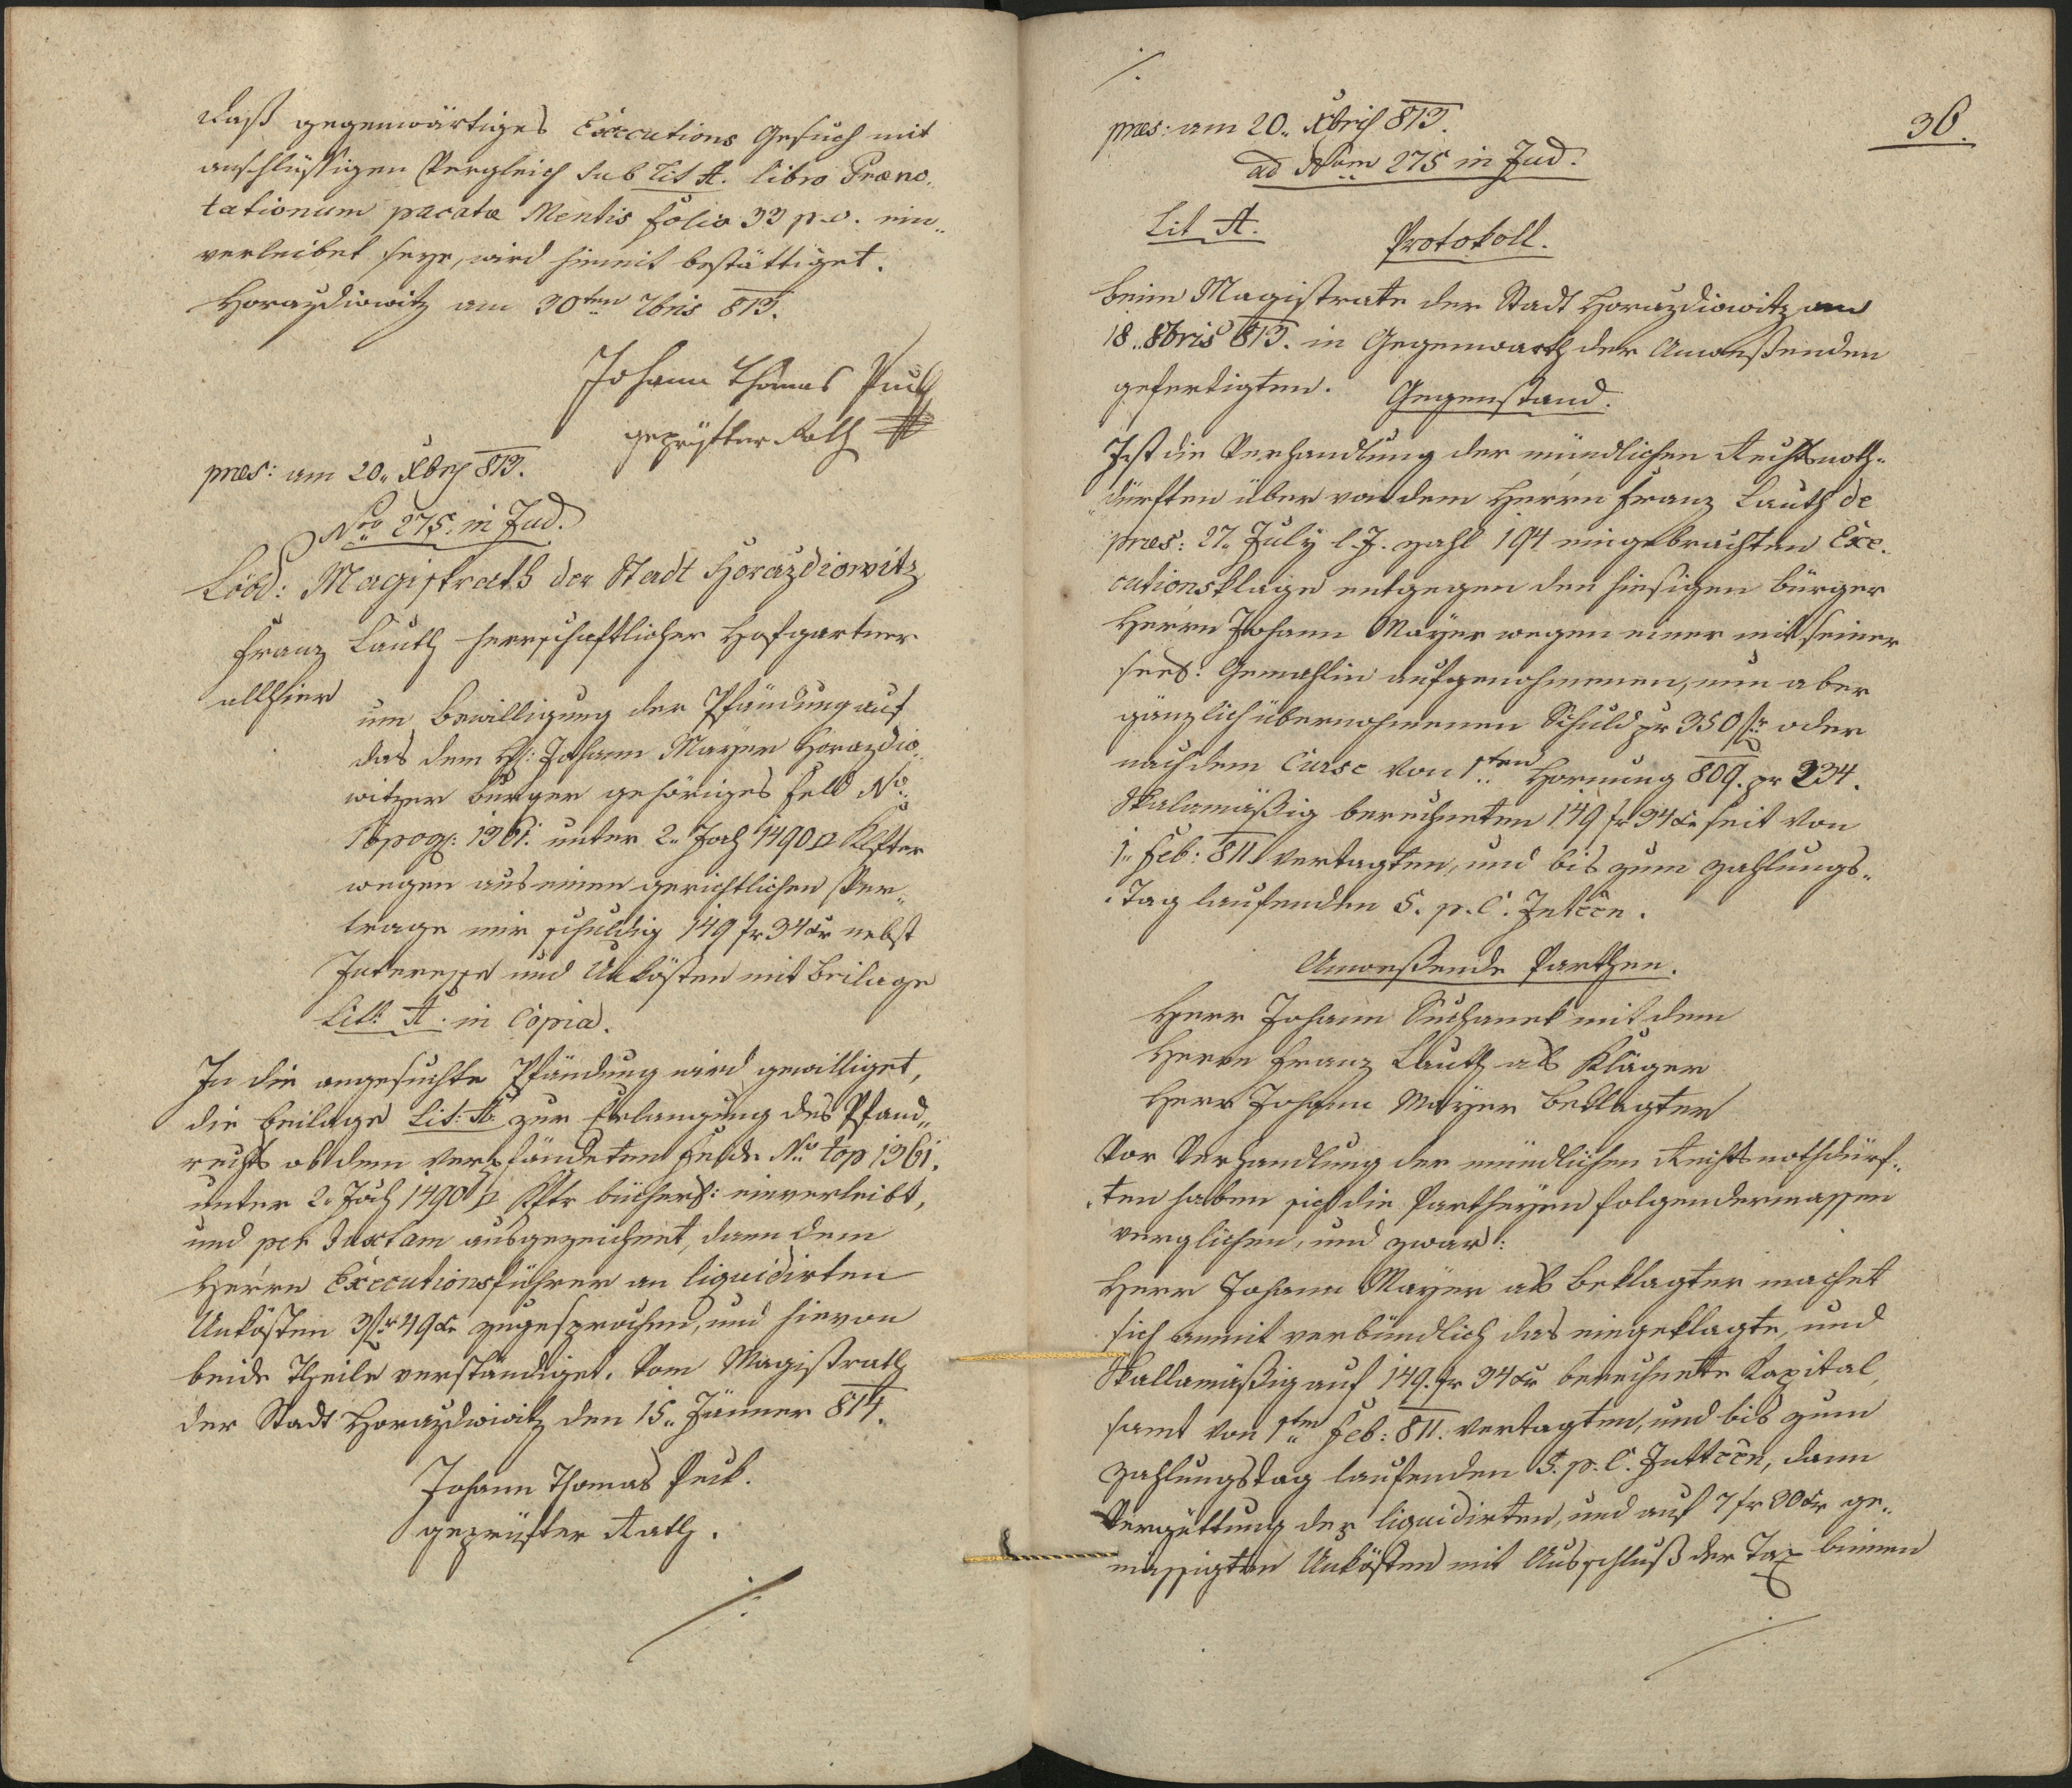 daß gegenwärtiges Executions Gesuch mit
anschlüßigen Vergleich sub Lit A. libro Præno„
tationum pacatæ Mentis folio 33 p. v. ein„
verleibet seye, wird hiemit bestättiget.
Horazdiowitz am 30ten 7bris 813.
Johann Thomas Puck
geprüfter Rath
præs: am 20„ Xbris 813.
Nro 275. in Jud.
Löbl: Magistrath der Stadt Horazdiowitz
Franz Lauth herrschaftlicher Hofgartner
allhier
um Bewilligung der Pfändung auf
das dem H: Johann Mayer Horazdio„
witzer Burger gehöriges Feld No
Topog: 1361. unter 2„ Joch 1490 □ Klfter
wegen aus einem gerichtlichen Ver„
trage mir schuldig 149 fr 34 xr nebst
Interesse und Unkösten mit Beilage
Litt: A. in Copia.
In die angesuchte Pfändung wird gewilliget,
die Beilage Lit: A zur Erlangung des Pfand„
rechts ob dem verpfändeten Felde No top 1361.
unter 2„ Joch 1490 □ Klftr bücherl: einverleibt,
und per Juxtam ausgezeichnet, dann dem
Herrn Executionsführer an liquidirten
Unkösten 3 fr 49 xr zugesprochen, und hievon
beide Theile verständiget. Vom Magistrath
der Stadt Horazdiowitz den 15„ Jänner 814.
Johann Thomas Puck.
geprüfter Rath.
./.
./.
præs: am 20„ Xbris 813.
36.
ad Num 275 in Jud.
Lit A.
Protokoll.
beim Magistrate der Stadt Horazdiowitz am
18„ 8bris 813. in Gegenwarth der Anweßenden
gefertigten. Gegenstand.
Ist die Verhandlung der mündlichen Rechtsnoth„
„dürften über von dem Herrn Franz Lauth de
præs: 27„ July l. J. Zahl 194 eingebrachten Exe„
cutionsklage entgegen den hiesigen Bürger
Herrn Johann Mayer wegen einer mit seiner
seel: Gemahlin aufgenohmenen, nun aber
gänzlich übernohmenen Schuld pr 350 fr oder
nach dem Curse von 1ten Hornung 809. pr 234.
Skalamäßig berechneten 149 fr 34 xr seit von
1„ Feb: 811. vertagten, und bis zum Zahlungs„
„Tag laufenden 5. p. C. Inteen.
Anweßende Parthen.
Herr Johann Suchanek mit dem
Herrn Franz Lauth als Kläger
Herr Johann Mayer Beklagter
Vor Verhandlung der mündlichen Rechtsnothdürf„
„ten haben sich die Partheyen folgendermassen
verglichen, und zwar:
Herr Johann Mayer als Beklagter machet
sich anmit verbündlich das eingeklagte, und
Skallamäßig auf 149. fr 34 xr berechnete Kapital,
samt von 1ten Feb: 811. vertagten, und bis zum
Zahlungstag laufenden 5. p. C. Intteen, dann
Vergüttung der liquidirten, und auf 7 fr 30 xr ge„
mässigten Unkösten mit Ausschluß der Tax binnen
./.